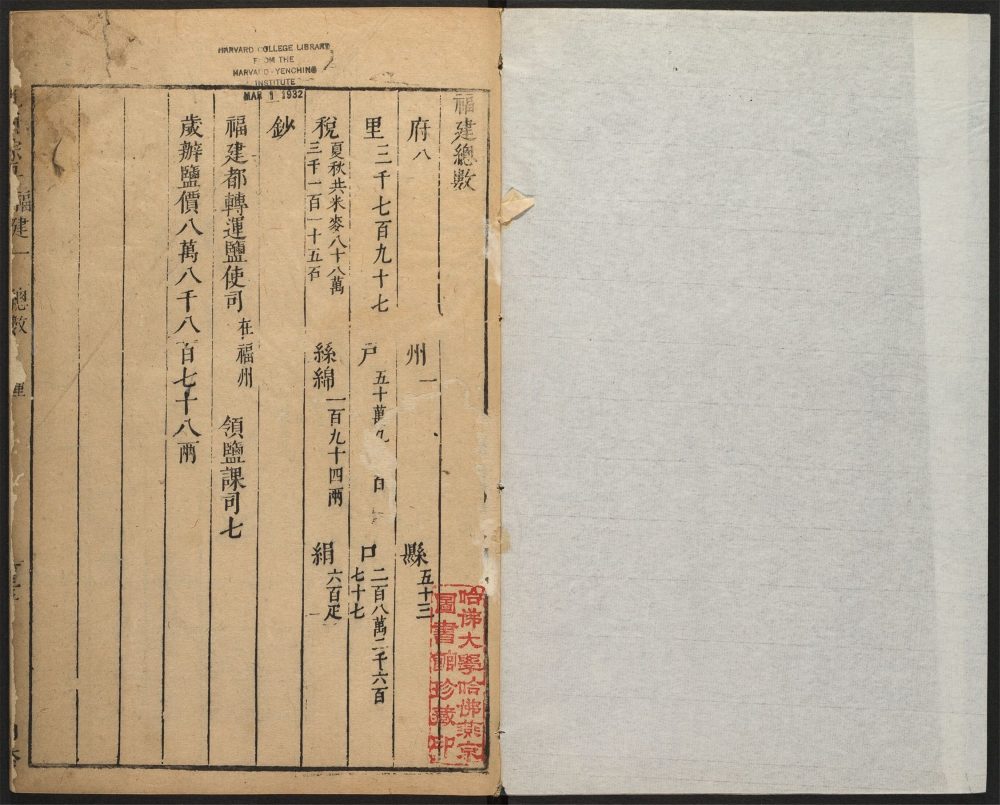 HARVARD COLLEGE LIBRARY
FROM THE
HARVARD-YENCHING
INSTITUTE
MAR 1 1932
福建總數
府八 州一 縣五十三
里三千七百九十七 戶五十萬九 百 口二百八萬二千六百七十七
稅夏秋共米麥八十八萬三千一百一十五石 絲綿一百九十四兩 絹六百疋
鈔
福建都轉運鹽使司在福州 領鹽課司七
歲辦鹽價八萬八千八百七十八兩
福建一 總數
哈佛大學哈佛燕京
圖書館珍藏印